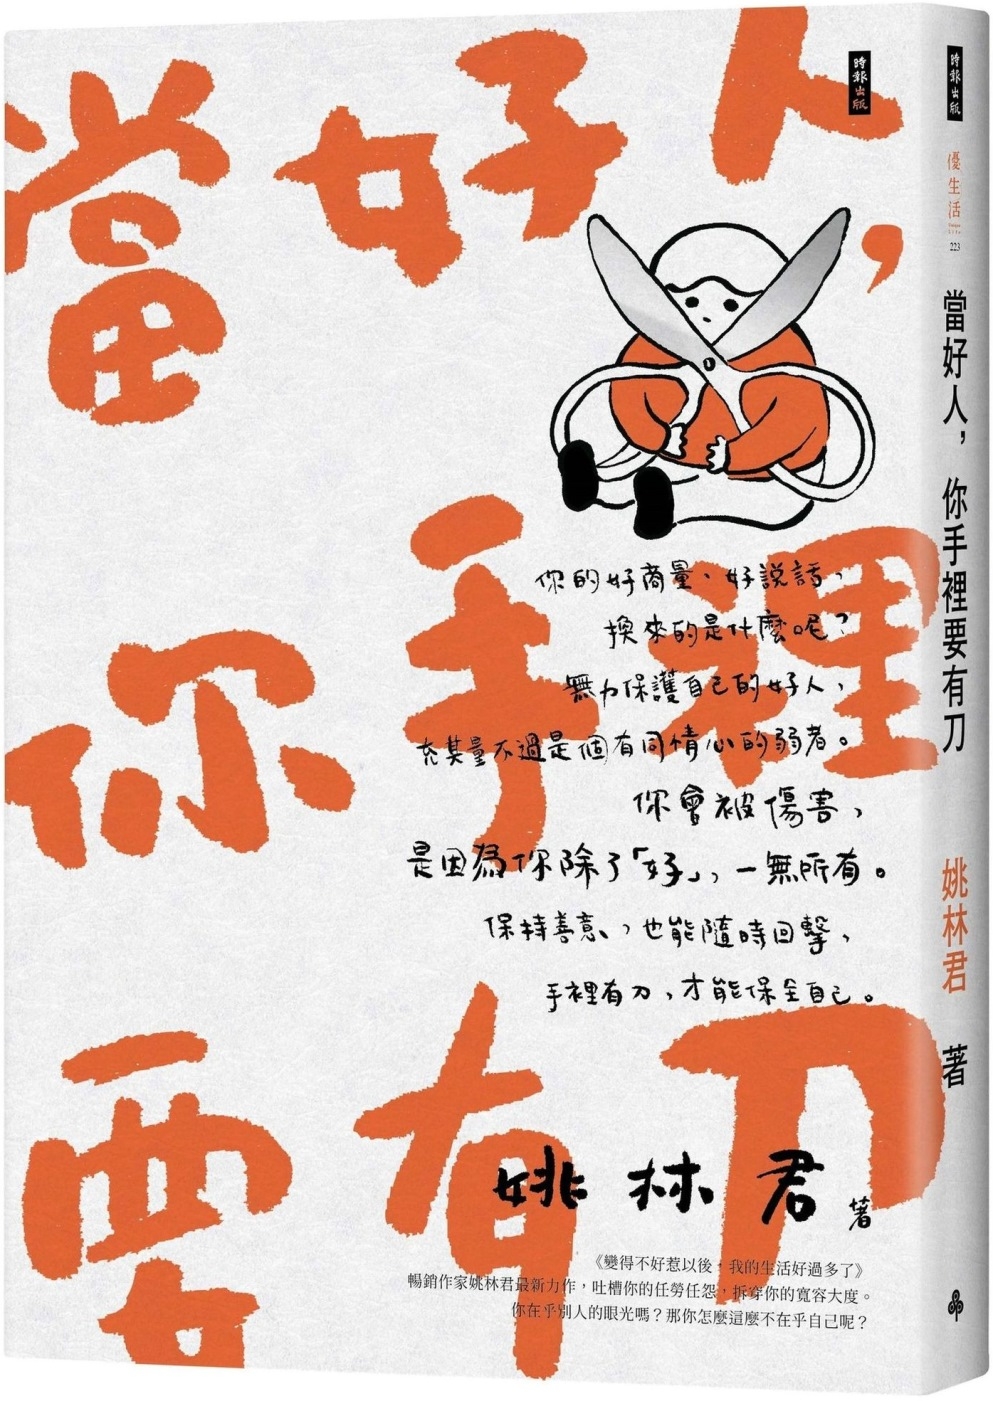 當好人，
你手裡
要有刀
時報出版
你的好商量、好說話，
換來的是什麼呢？
無力保護自己的好人，
充其量不過是個有同情心的弱者。
你會被傷害，
是因為你除了「好」，一無所有。
保持善意，也能隨時回擊，
手裡有刀，才能保全自己。
姚林君 著
《變得不好惹以後，我的生活好過多了》
暢銷作家姚林君最新力作，吐槽你的任勞任怨，拆穿你的寬容大度。
你在乎別人的眼光嗎？那你怎麼這麼不在乎自己呢？
時報出版
優生活
223
當好人，你手裡要有刀
姚林君 著